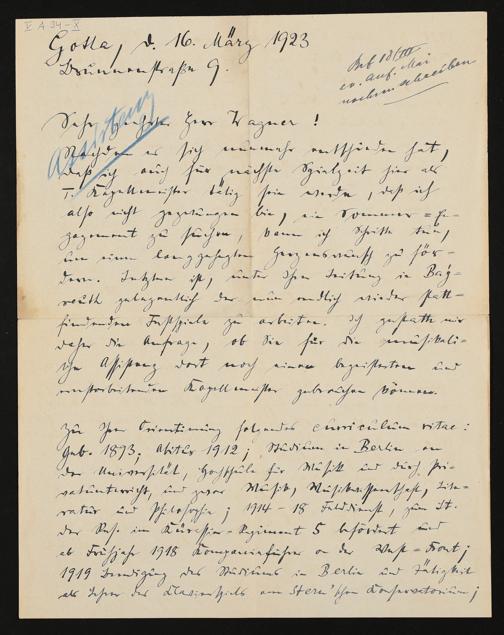 V A 34-X
Gotha, d. 16. März 1923
Brunnenstraße 9.
Bub 18/III
ev. Anf. Mai
nochm. schreiben
Sehr geehrter Herr Wagner!
Nachdem es sich nunmehr entschieden hat,
daß ich auch für nächste Spielzeit hier als
I. Kapellmeister tätig sein werde, daß ich
also nicht gezwungen bin, ein Sommer-En-
gagement zu suchen, kann ich Schritte tun,
um einen langgehegten Herzenswunsch zu för-
dern. Letzterer ist, unter Ihrer Leitung in Bay-
reuth gelegentlich der nun endlich wieder statt-
findenden Festspiele zu arbeiten. Ich gestatte mir
daher die Anfrage, ob Sie für die musikali-
sche Assistenz dort noch einen begeisterten und
ernstarbeitenden Kapellmeister gebrauchen können.
Zu Ihrer Orientierung folgendes curriculum vitae:
Geb. 1893; Abitur 1912; Studium in Berlin an
der Universität, Hochschule für Musik und durch Pri-
vatunterricht, und zwar Musik, Musikwissenschaft, Lite-
ratur und Philosophie; 1914-18 Felddienst, zum Lt.
der Res. im Kürassier-Regiment 5 befördert und
ab Frühjahr 1918 Kompanieführer an der West-Front;
1919 Beendigung des Studiums in Berlin und Tätigkeit
als Lehrer des Klavierspiels am Stern'schen Konservatorium;